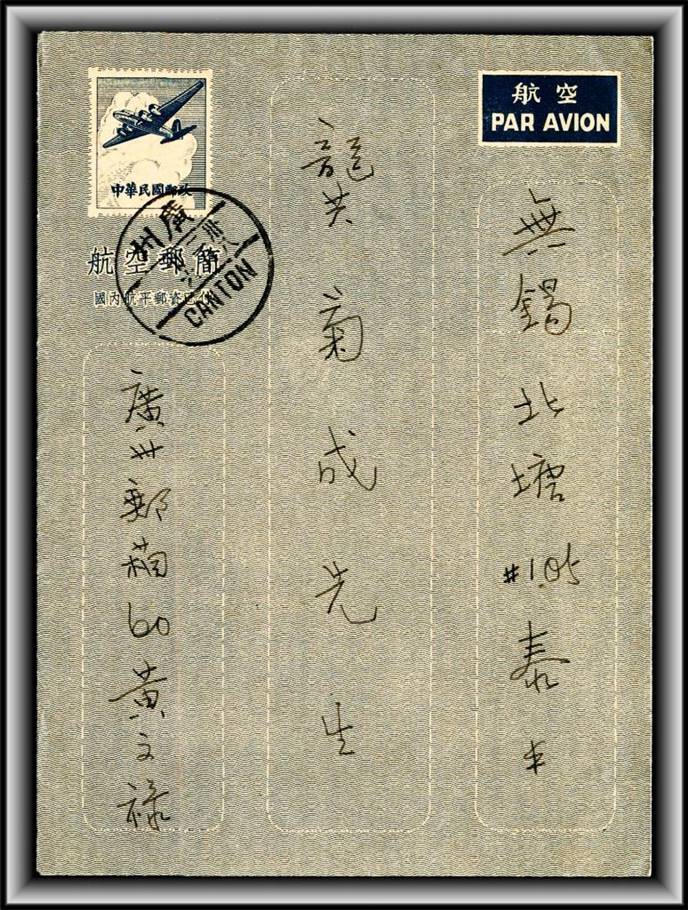 航空
PAR AVION
中華民國郵政
航空郵簡
國內航平郵資已付
廣州
CANTON
無錫北塘#105泰
龔菊成先生
廣州郵箱60黃文祿